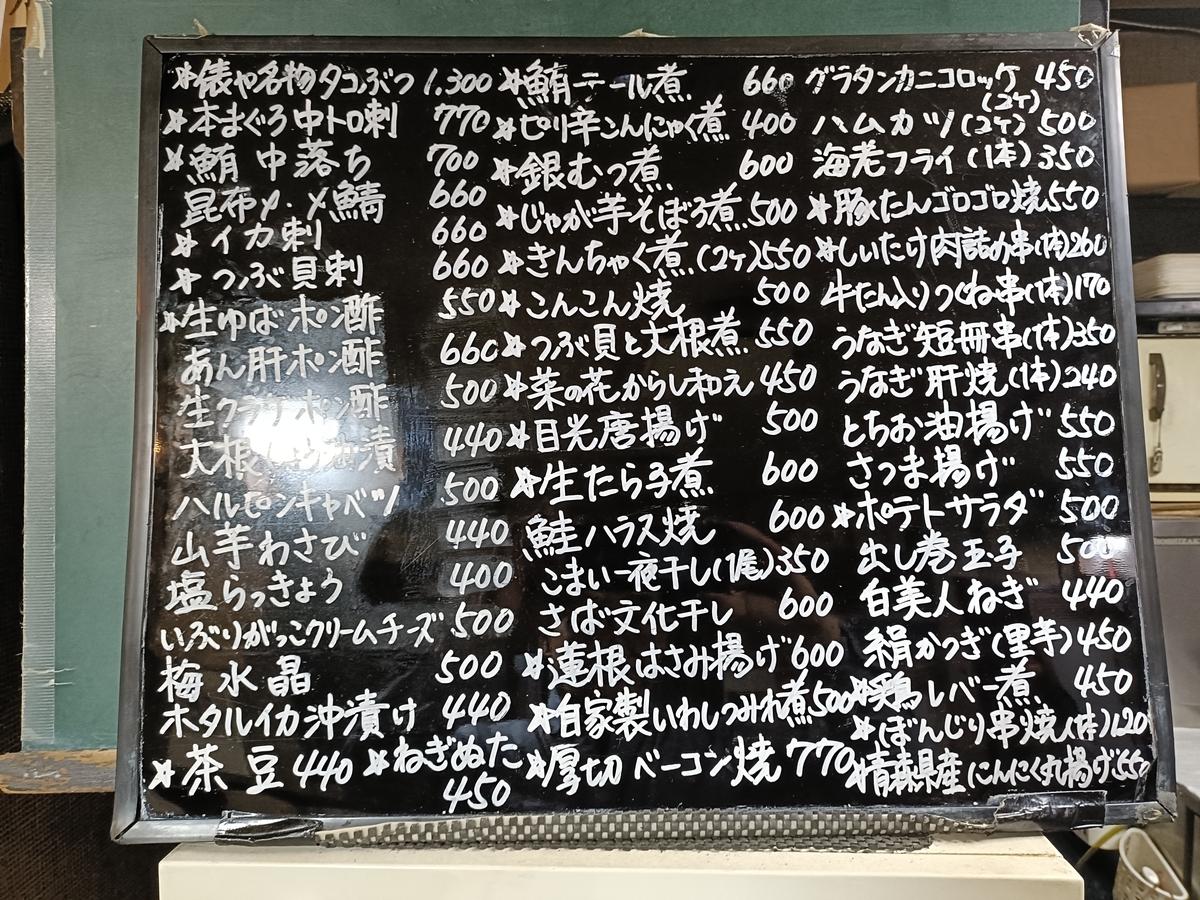 ☆俵や名物タコぶつ 1,300
☆本まぐろ中トロ刺 770
☆鮪中落ち 700
昆布〆・〆鯖 660
☆イカ刺 660
☆つぶ貝刺 660
☆生ゆばポン酢 550
あん肝ポン酢 660
生クラゲポン酢 500
大根 漬 440
ハルピンキャベツ 500
山芋わさび 440
塩らっきょう 400
いぶりがっこクリームチーズ 500
梅水晶 500
ホタルイカ沖漬け 440
☆茶豆 440 ☆ねぎぬた
450
☆鮪テール煮 660
☆ピリ辛こんにゃく煮 400
☆銀むつ煮 600
☆じゃが芋そぼろ煮 500
☆きんちゃく煮(2ケ) 550
☆こんこん焼 500
☆つぶ貝と大根煮 550
☆菜の花からし和え 450
☆目光唐揚げ 500
☆生たら子煮 600
鮭ハラス焼 600
こまい一夜干し(1尾) 350
さば文化干し 600
☆蓮根はさみ揚げ 600
☆自家製いわしつみれ煮 500
☆厚切ベーコン焼 770
グラタンカニコロッケ 450
(2ケ)
ハムカツ(2ケ) 500
海老フライ(1本) 350
☆豚たんゴロゴロ焼 550
☆しいたけ肉詰め串(1本) 260
牛たん入りつくね串(1本) 170
うなぎ短冊串(1本) 350
うなぎ肝焼(1本) 240
とちお油揚げ 550
さつま揚げ 550
☆ポテトサラダ 500
出し巻玉子 500
白美人ねぎ 440
絹かつぎ(里芋) 450
☆鶏レバー煮 450
☆ぼんじり串焼(1本) 120
☆青森県産にんにく丸揚げ 550